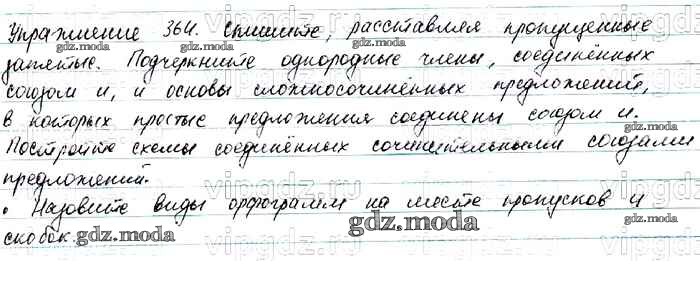 Упражнение 364. Спишите, расставляя пропущенные
запятые. Подчеркните однородные члены, соединённых
союзом и, и основы сложносочинённых предложений,
в которых простые предложения соединены союзом и.
Постройте схемы соединённых сочинительными союзами
предложений.
• Назовите виды орфограмм на месте пропусков и
скобок.